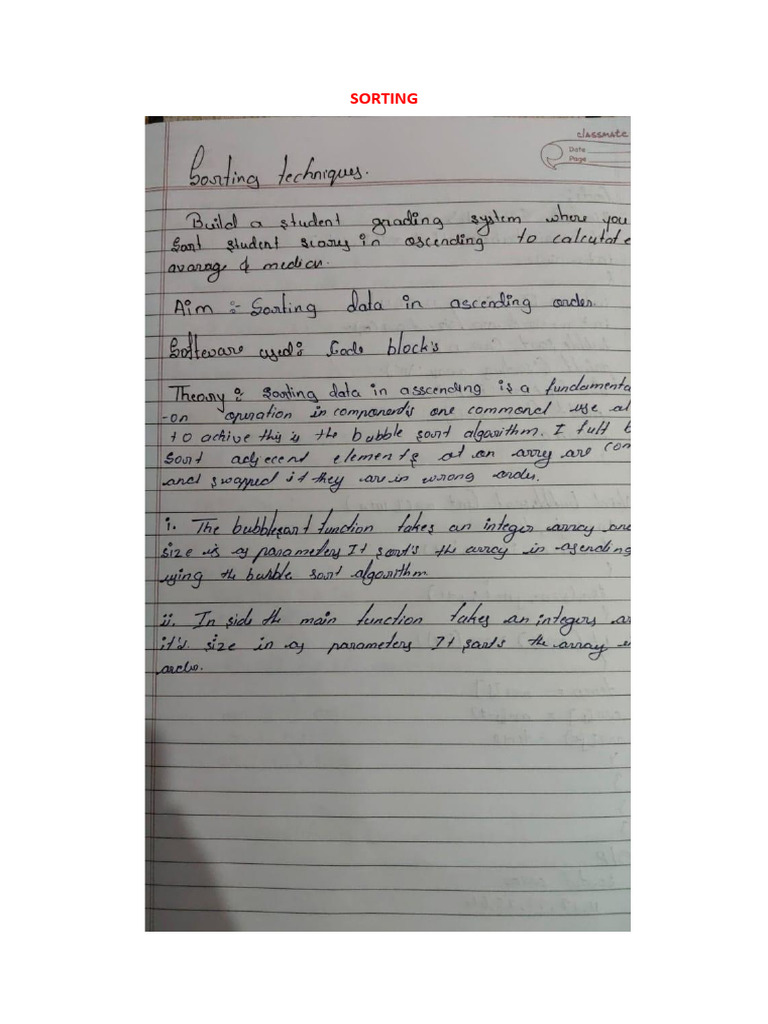 SORTING
classmate
Date
Page
Sorting techniques.
Build a student grading system where you
Sort student scory in ascending to calculate
avarag & median.
Aim :- Sorting data in ascending order
Software used: Code block's
Theory : Sorting data in asscending is a fundamenta
-on opuration in components one commonal use al
to achive this is the bubble sort algorithm. I full b
Sort adjecend elements at an arry are com
and swapped it they are in wrong order.
i. The bubblesort function takes an integer array and
size is as parameters It sort's the array in asending
using the bubble sort algorithm.
ii. In side the main function takes an integers ar
it's size in as parameters It sorts the array